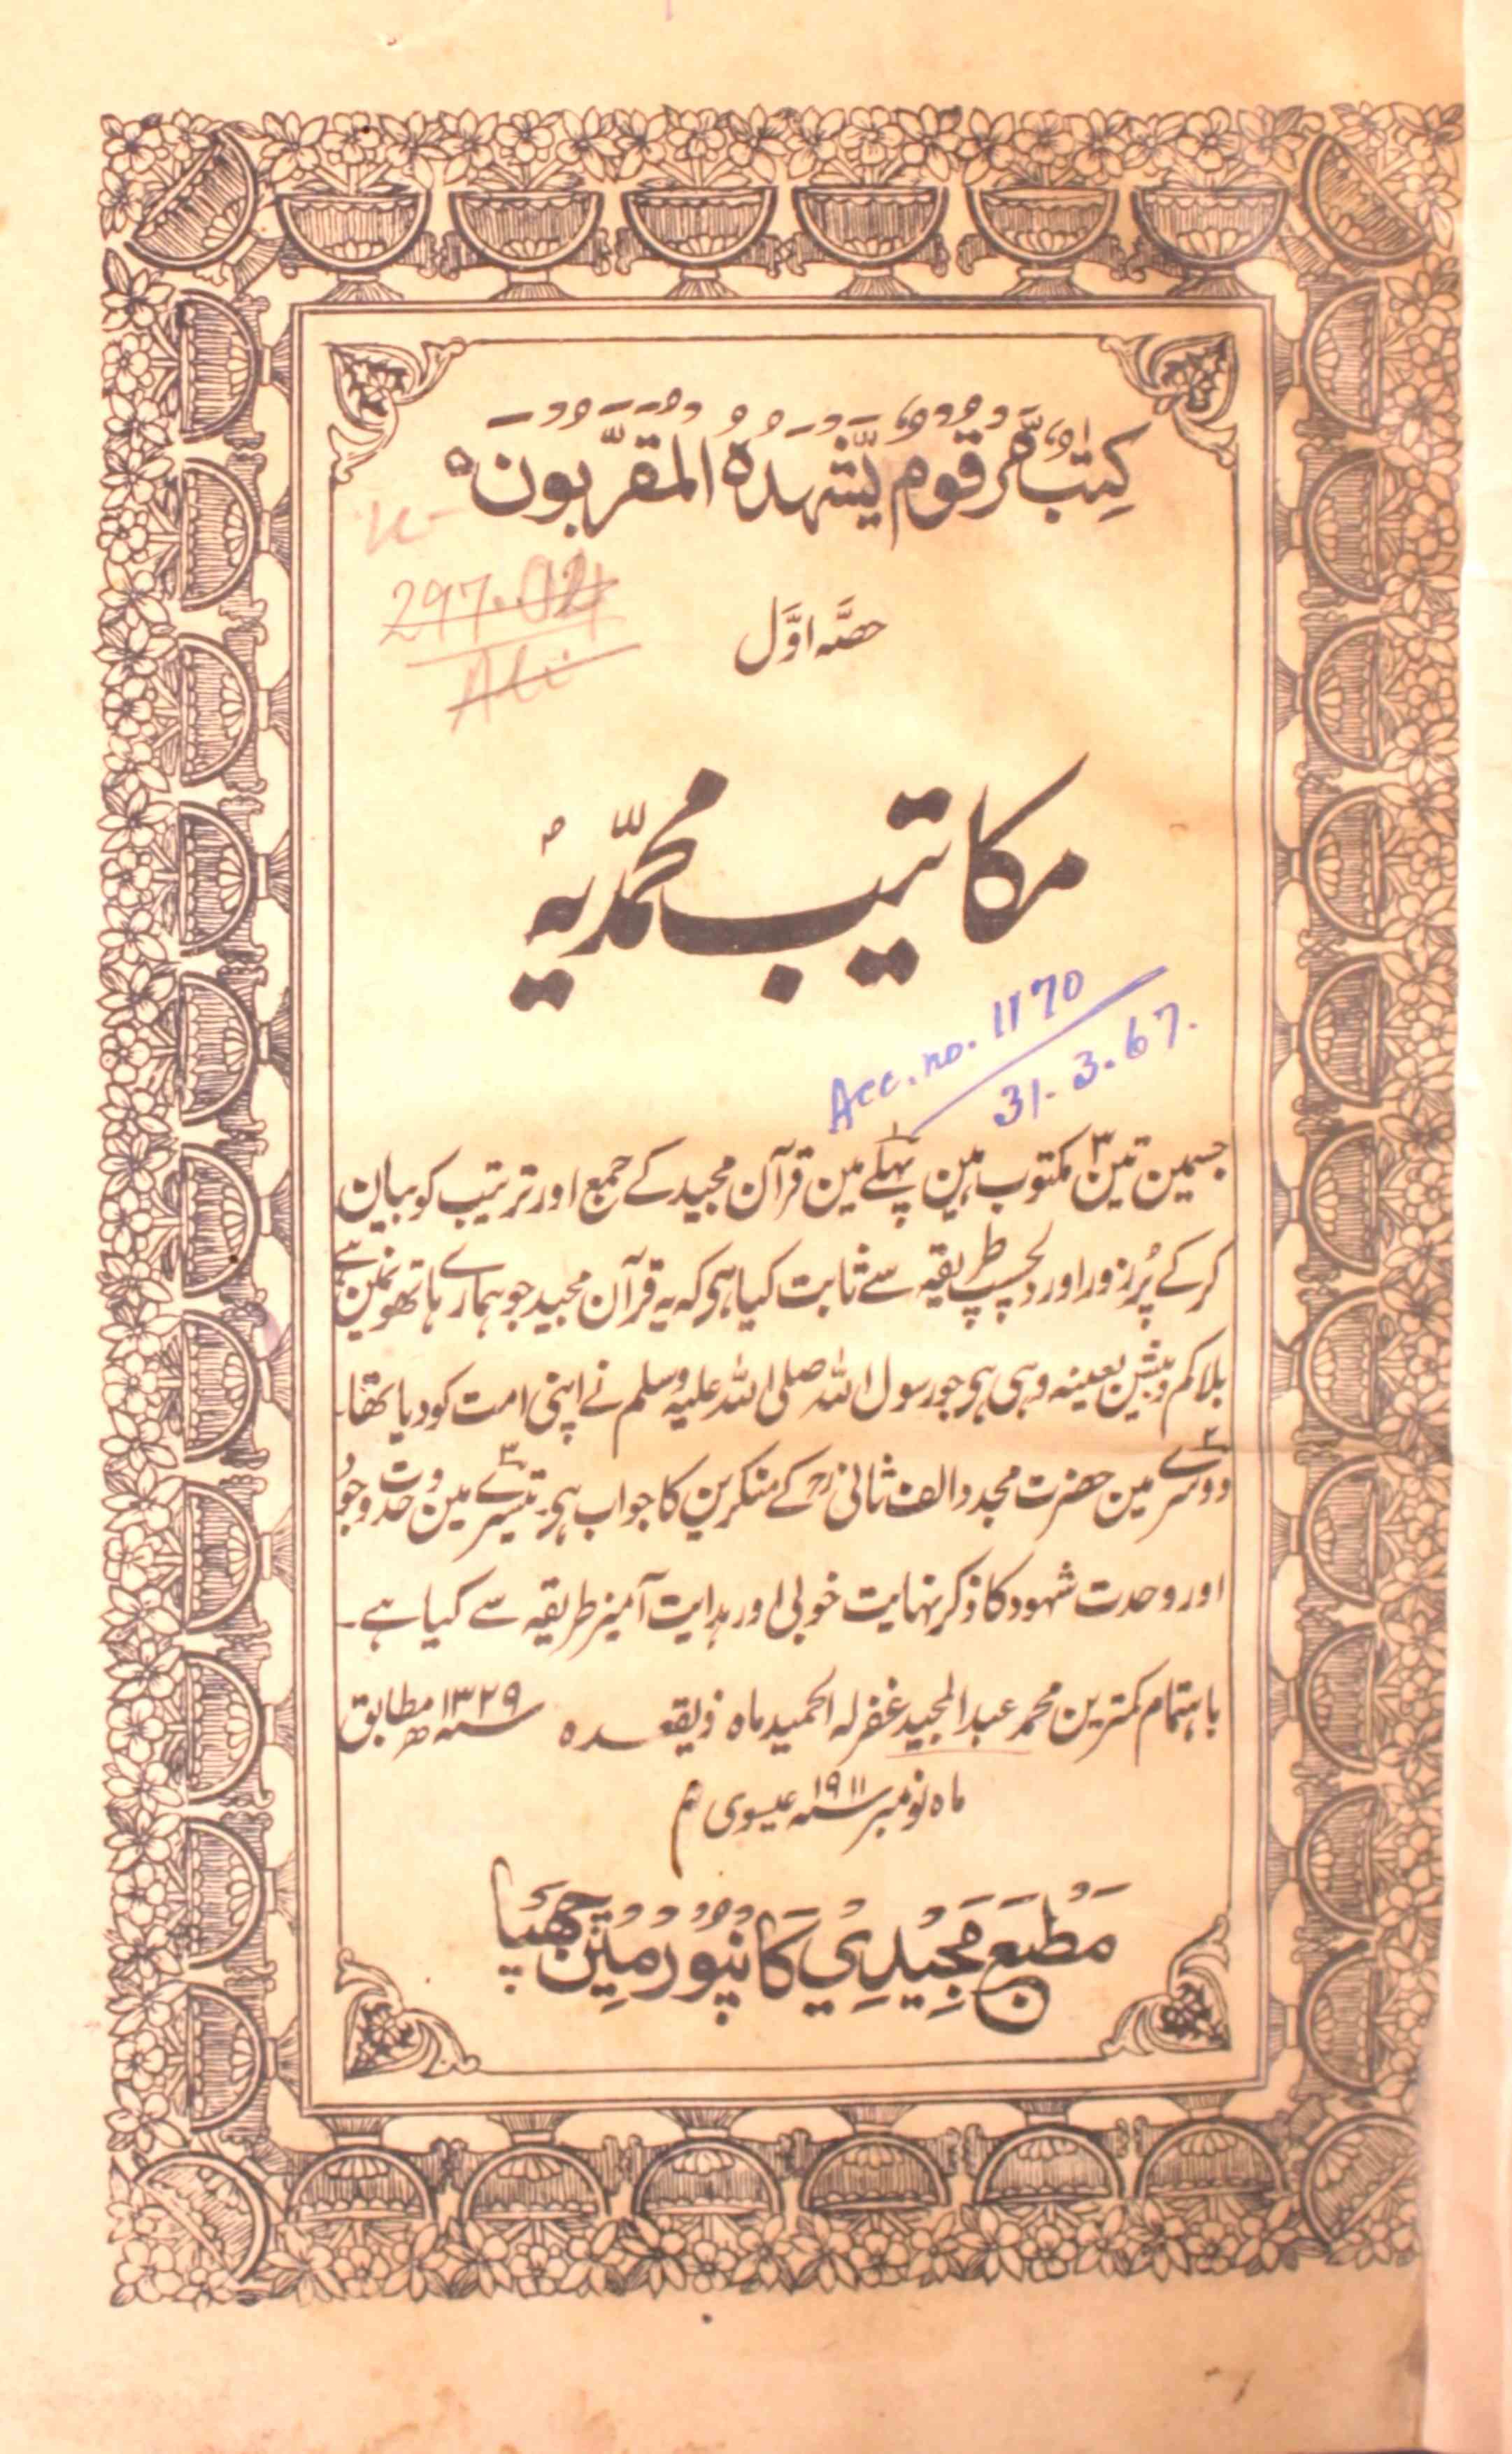 كِتٰبٌ مَّرْقُوْمٌ يَّشْهَدُهُ الْمُقَرَّبُوْنَ ه
297.04
Ali
حصّہ اوّل
مکاتیب محمّدیہ
Acc. no. 1170
31.3.67.
جسمین تین ۳ مکتوب ہین پہلے ۱ مین قرآن مجید کے جمع اور ترتیب کو بیان
کرکے پُرزور اور دلچسپ طریقہ سے ثابت کیا ہی کہ یہ قرآن مجید جو ہمارے ہاتھونمین ہے
بلا کم و بیش بعینہ وہی ہی جو رسول اللہ صلی اللہ علیہ وسلم نے اپنی امت کو دیا تھا۔
دوسرے ۲ مین حضرت مجدد الف ثانی رح کے منکرین کا جواب ہی۔ تیسرے ۳ مین وحدت وجود
اور وحدت شہود کا ذکر نہایت خوبی اور ہدایت آمیز طریقہ سے کیا ہے۔
باہتمام کمترین محمد عبد المجید غفرلہ الحمید ماہ ذیقعدہ سنہ ۱۳۲۹ھ مطابق
ماہ نومبر سنہ ۱۹۱۱ عیسوی م
مَطْبَع مَجِيْدِيْ كَانْپُوْر مِيْن چَھپَا